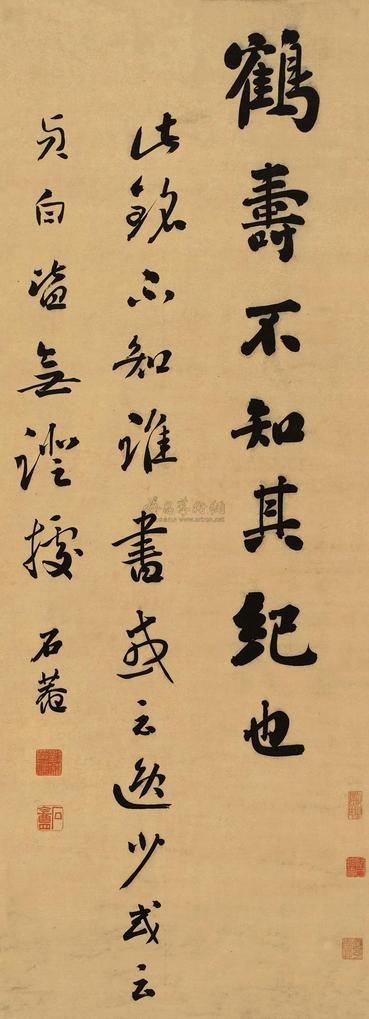 鶴壽不知其紀也
此銘不知誰書或云逸少或云
貞白皆無證據 石菴
www.artron.net